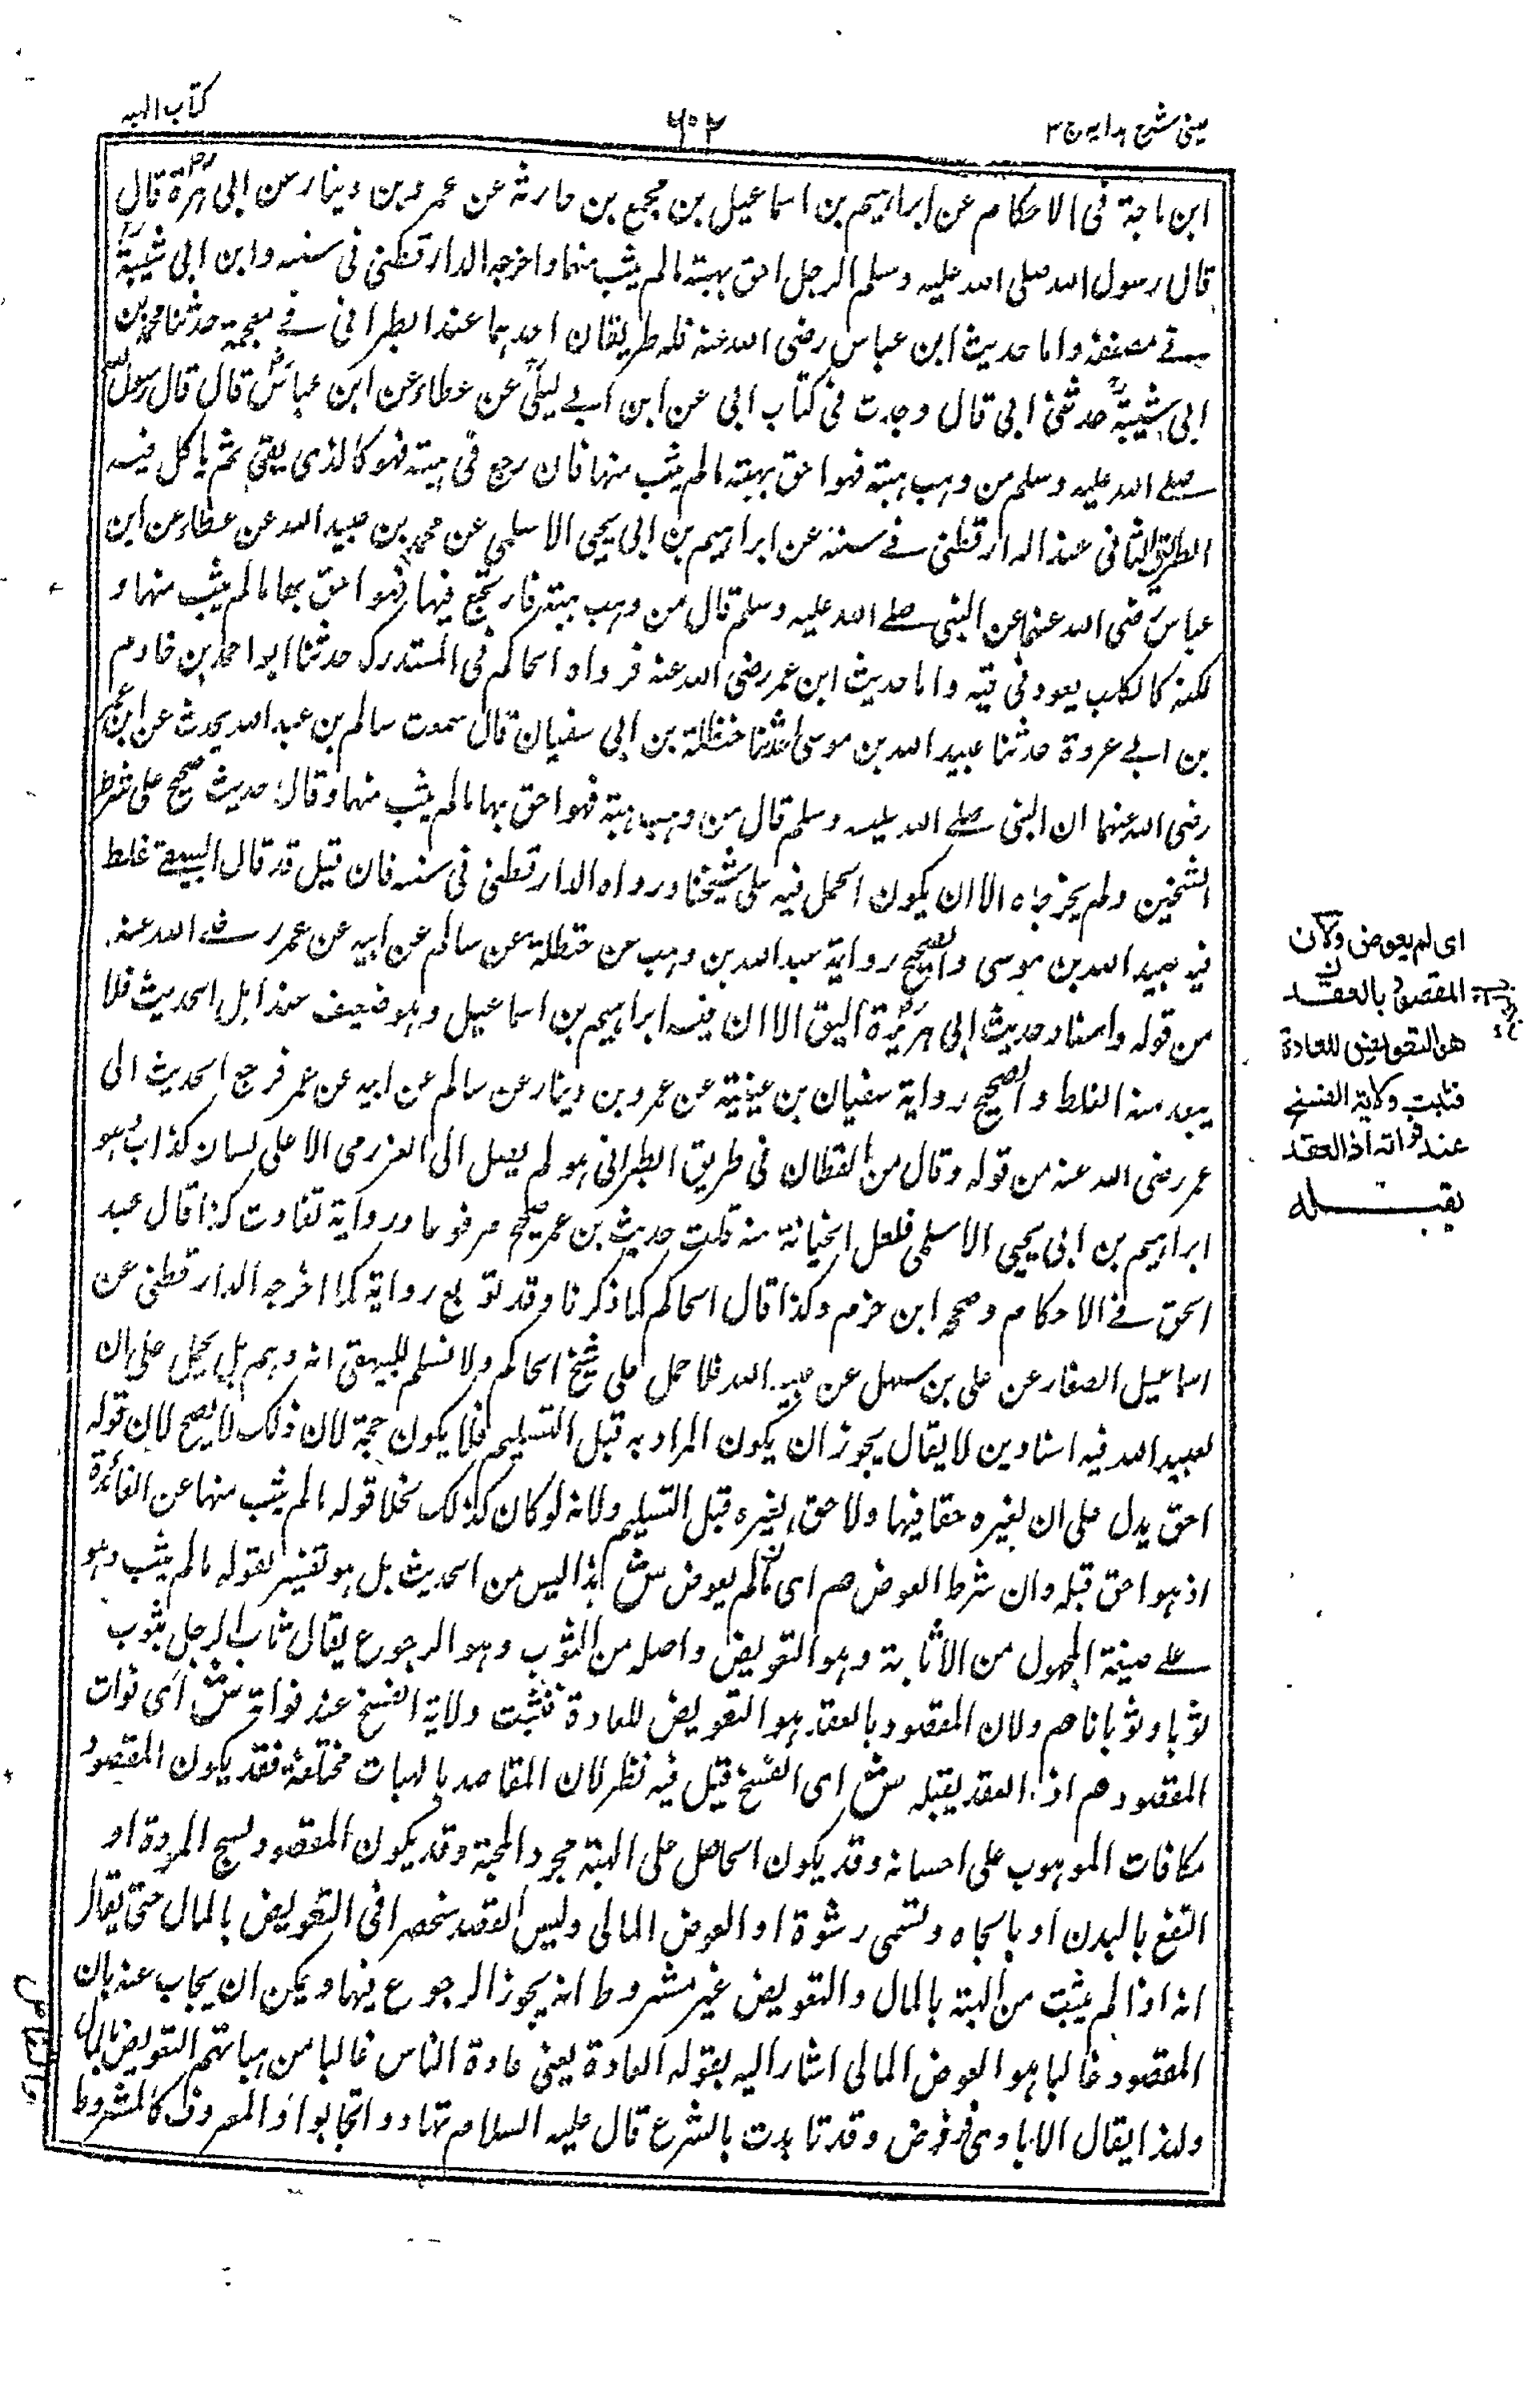 عینی شرح ہدایہ ج ۳
۶۰۲
کتاب الہبہ
ابن ماجة فی الاحکام عن ابراہیم بن اسماعیل بن مجمع بن حارثة عن عمرو بن دینار عن ابی ہریرة قال
قال رسول اللہ صلی اللہ علیہ وسلم الرجل احق بہبتہ مالم یثب منہا واخرجہ الدارقطنی فی سننہ وابن ابی شیبة
فے مصنفہ واما حدیث ابن عباس رضی اللہ عنہ فلہ طریقان احدہما عند الطبرانی فے معجمہ حدثنا محمد بن
ابی شیبة حدثنی ابی قال وجدت فی کتاب ابی عن ابن ابے لیلی عن عطاء عن ابن عباس قال قال رسول اللہ
صلے اللہ علیہ وسلم من وہب ہبة فہو احق بہبتہ مالم یثب منہا فان رجع فی ہبتہ فہو کالذی یقئ ثم یاکل فیہ
الطریق الثانی عند الدارقطنی فے سننہ عن ابراہیم بن ابی یحیی الاسلمی عن محمد بن عبید اللہ عن عطاء عن ابن
عباس رضی اللہ عنہما عن النبی صلے اللہ علیہ وسلم قال من وہب ہبة فارتجع فیہا فہو احق بہا مالم یثب منہا و
لکنہ کالکلب یعود فی قیہ واما حدیث ابن عمر رضی اللہ عنہ فرواہ الحاکم فی المستدرک حدثنا ابو احمد بن خادم
بن ابے عروة حدثنا عبید اللہ بن موسی حدثنا حنظلة بن ابی سفیان قال سمعت سالم بن عبد اللہ یحدث عن ابن عمر
رضی اللہ عنہما ان النبی صلے اللہ علیہ وسلم قال من وہب ہبة فہو احق بہا مالم یثب منہا وقال حدیث صحیح علی شرط
الشیخین ولم یخرجاہ الا ان یکون الحمل فیہ علی شیخنا ورواہ الدارقطنی فی سننہ فان قیل قد قال البیہقے غلط
فیہ عبید اللہ بن موسی والصحیح روایة عبد اللہ بن وہب عن حنظلة عن سالم عن ابیہ عن عمر رضے اللہ عنہ
من قولہ واسناد حدیث ابی ہریرة الیق الا ان فیہ ابراہیم بن اسماعیل وہو ضعیف عند اہل الحدیث فلا
یبعد منہ الغلط والصحیح روایة سفیان بن عیینة عن عمرو بن دینار عن سالم عن ابیہ عن عمر فرجع الحدیث الی
عمر رضی اللہ عنہ من قولہ وقال من القطان فی طریق الطبرانی ہو لم یصل الی العزرمی الا علی لسان کذاب ہو
ابراہیم بن ابی یحیی الاسلمی فلعل الخیانة منہ قلت حدیث بن عمر صحیح مرفوعا ورواتہ ثقاوت کذا قال عبد
الحق فے الاحکام وصححہ ابن حزم وکذا قال الحاکم کما ذکرنا وقد توبع رواتہ کما اخرجہ الدارقطنی عن
اسماعیل الصفار عن علی بن سہل عن عبید اللہ فلا حمل علی شیخ الحاکم ولا نسلم للبیہقی انہ وہم بل یحمل علی ان
لعبید اللہ فیہ اسنادین لا یقال یجوز ان یکون المراد بہ قبل التسلیم فلا یکون حجة لان ذلک لا یصح لان قولہ
احق یدل علی ان لغیرہ حقا فیہا ولا حق لغیرہ قبل التسلیم ولانہ لو کان کذلک لخلا قولہ مالم یثب منہا عن الفائدة
اذ ہو احق قبلہ وان شرط العوض ھم ای مالم یعوض ش ہذا لیس من الحدیث بل ہو تفسیر لقولہ مالم یثب وہو
علے صیغة المجہول من الاثابة وہو التعویض واصلہ من الثوب وہو الرجوع یقال ثاب الرجل یثوب
ثوبا وثوبانا ھم ولان المقصود بالعقد ہو التعویض للعادة فتثبت ولایة الفسخ عند فواتہ ش ای فوات
المقصود ھم اذ العقد یقبلہ ش ای الفسخ قیل فیہ نظر لان المقاصد بالہبات مختلفة فقد یکون المقصود
مکافات الموہوب علی احسانہ وقد یکون الحاصل علی الہبة مجرد المحبة وقد یکون المقصود المروة او
النفع بالبدن او بالجاہ وتسمی رشوة او العوض المالی ولیس القصد منحصرا فی التعویض بالمال حتی یقال
انہ اذا لم یثبت من الہبة بالمال والتعویض غیر مشروط انہ یجوز الرجوع فیہا ویمکن ان یجاب عنہ بان
المقصود غالبا ہو العوض المالی اشار الیہ بقولہ العادة یعنی عادة الناس غالبا من ہباتہم التعویض بالمال
ولہذا یقال الایادی قروض وقد تایدت بالشرع قال علیہ السلام تہادوا تحابوا والمعروف کالمشروط
ای لم یعوض ولان
المقصود بالعقد
ھو التعویض للعادة
فتثبت ولایة الفسخ
عند فواتہ اذ العقد
یقبلہ